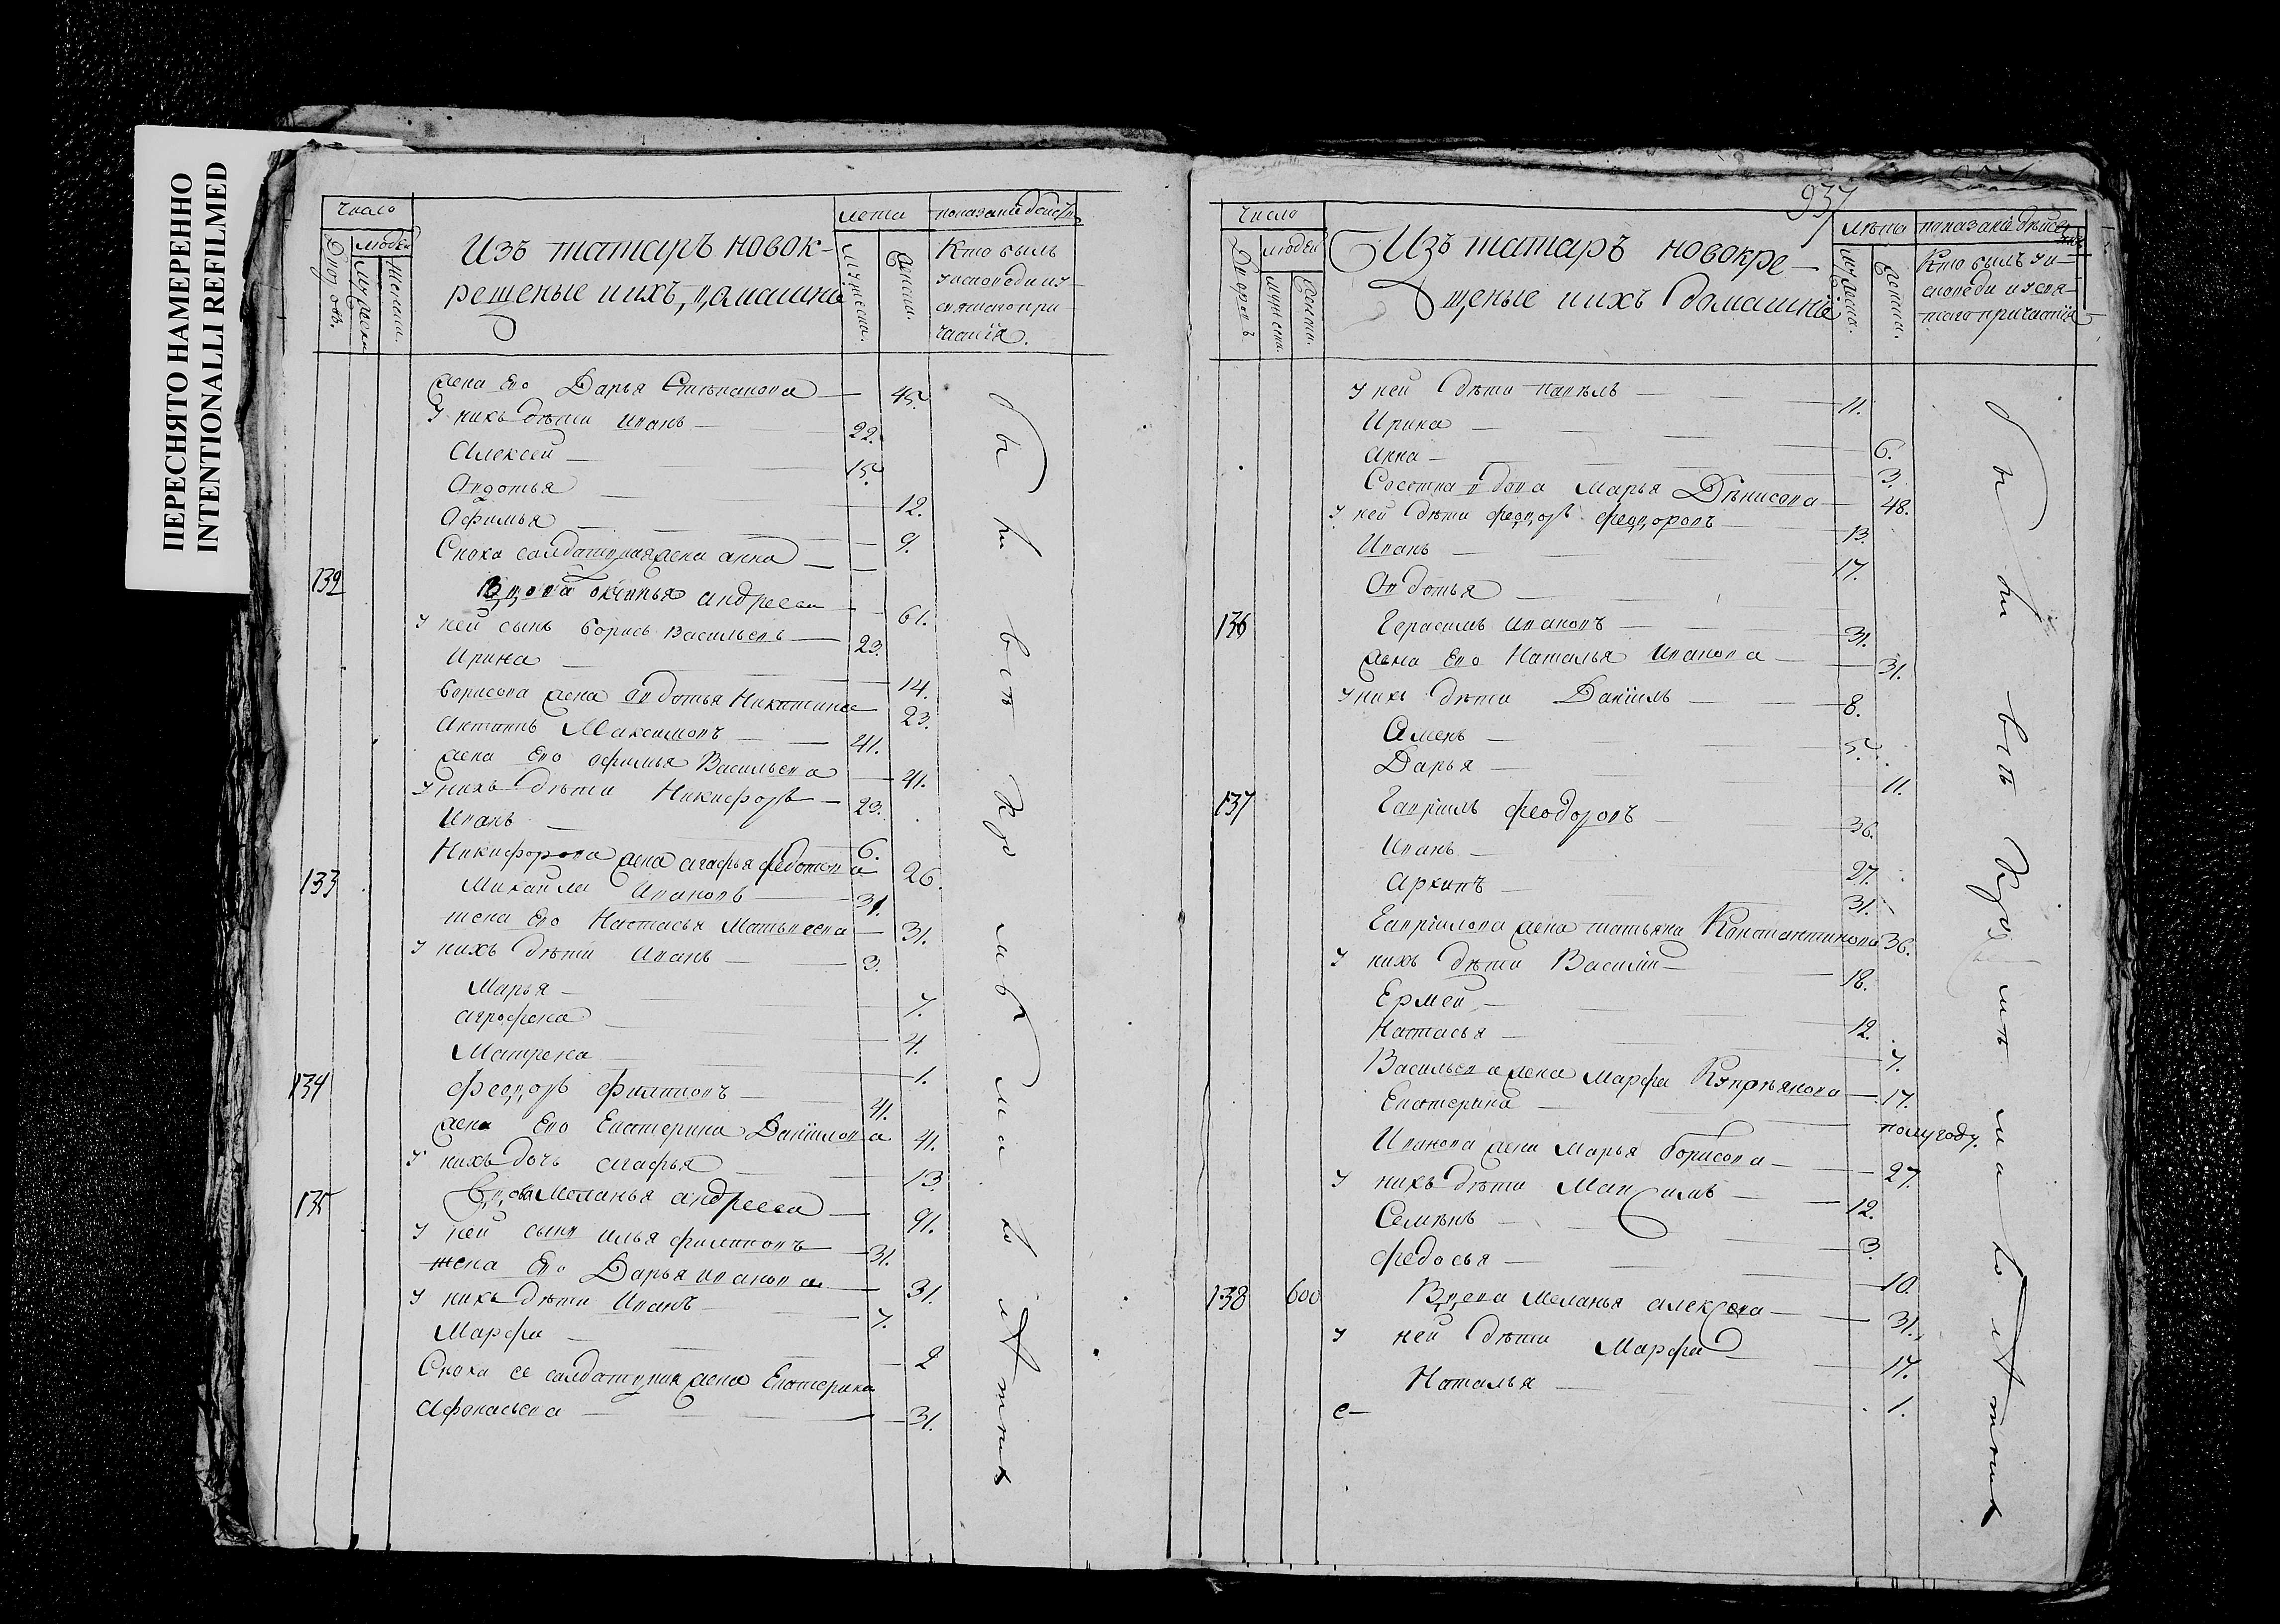 ПЕРЕСНЯТО НАМЕРЕННО
INTENTIONALLI REFILMED
число
людей
Дворовъ.
Мужеска
Женска.
Изъ татаръ новок-
рещеные и ихъ домашнiе
лета
Мужеска.
Женска.
показанiе действ
Кто былъ
у исповеди и у
святаго при
частiя.
жена его Дарья Степанова — 45.
У нихъ дѣти Иванъ — 22.
Алексей — 15.
Авдотья — 12.
Офимья — 9.
Сноха салдатцкая жена анна —
132 Вдова оксинья андреева — 61.
У ней сынъ борисъ васильевъ — 23.
Ирина — 14.
борисова жена авдотья Никитина 23.
Антипъ Максимовъ — 41.
жена его офимья Васильева — 41.
У нихъ дѣти Никифоръ — 23.
Иванъ — 6.
Никифорова жена агафья федотова 26.
133 Михайла Ивановъ — 31.
жена его Настасья Матвеева — 31.
У нихъ дѣти Иванъ — 3.
Марья — 7.
агрофена — 4.
Матрена — 1.
134 феодоръ филиповъ — 41.
жена его Екатерина Данiилова 41.
У нихъ дочь агафья — 13.
135 Вдова Меланья андреева — 91.
У ней сынъ илья филиповъ — 31.
жена его Дарья иванова — 31.
У нихъ дѣти Иванъ — 7.
Марфа — 2
Сноха ее салдатцкая жена Екатерина
Афонасьева — 31.
были все кроме малолетнихъ
937
число
людей
Дворовъ
Мужеска.
Женска.
Изъ татаръ новокре-
щеные и ихъ домашнiе
лѣта
мужеска.
Женска.
показанiе дѣйст
Кто былъ у и-
споведи и у свя-
таго причастiя
У ней дѣти павелъ — 11.
Ирина — 6.
анна — 3.
вдова Марья Дѣнисова — 48.
У ней дѣти феодоръ феодоровъ — 13.
Иванъ — 17.
Авдотья —
136 Герасимъ ивановъ — 31.
жена его Наталья иванова — 31.
У нихъ дѣти Данiилъ — 8.
Семенъ — 5.
Дарья — 11.
137 Гаврилъ феодоровъ — 36.
Иванъ — 27.
архипъ — 31.
Гаврiилова жена татьяна Константинова 36.
У нихъ дѣти Василiй — 18.
Ермей — 12.
Настасья — 7.
Васильева жена марфа Купрѣянова — 17.
Екатерина — полугоду.
Иванова жена марья борисова — 27.
У нихъ дѣти Максимъ — 12.
Семѣнъ — 3.
федосья — 10.
138 600 Вдова меланья алексеева — 31.
У ней дѣти Марфа — 17.
Наталья — 1.
были все кромѣ малолетнихъ